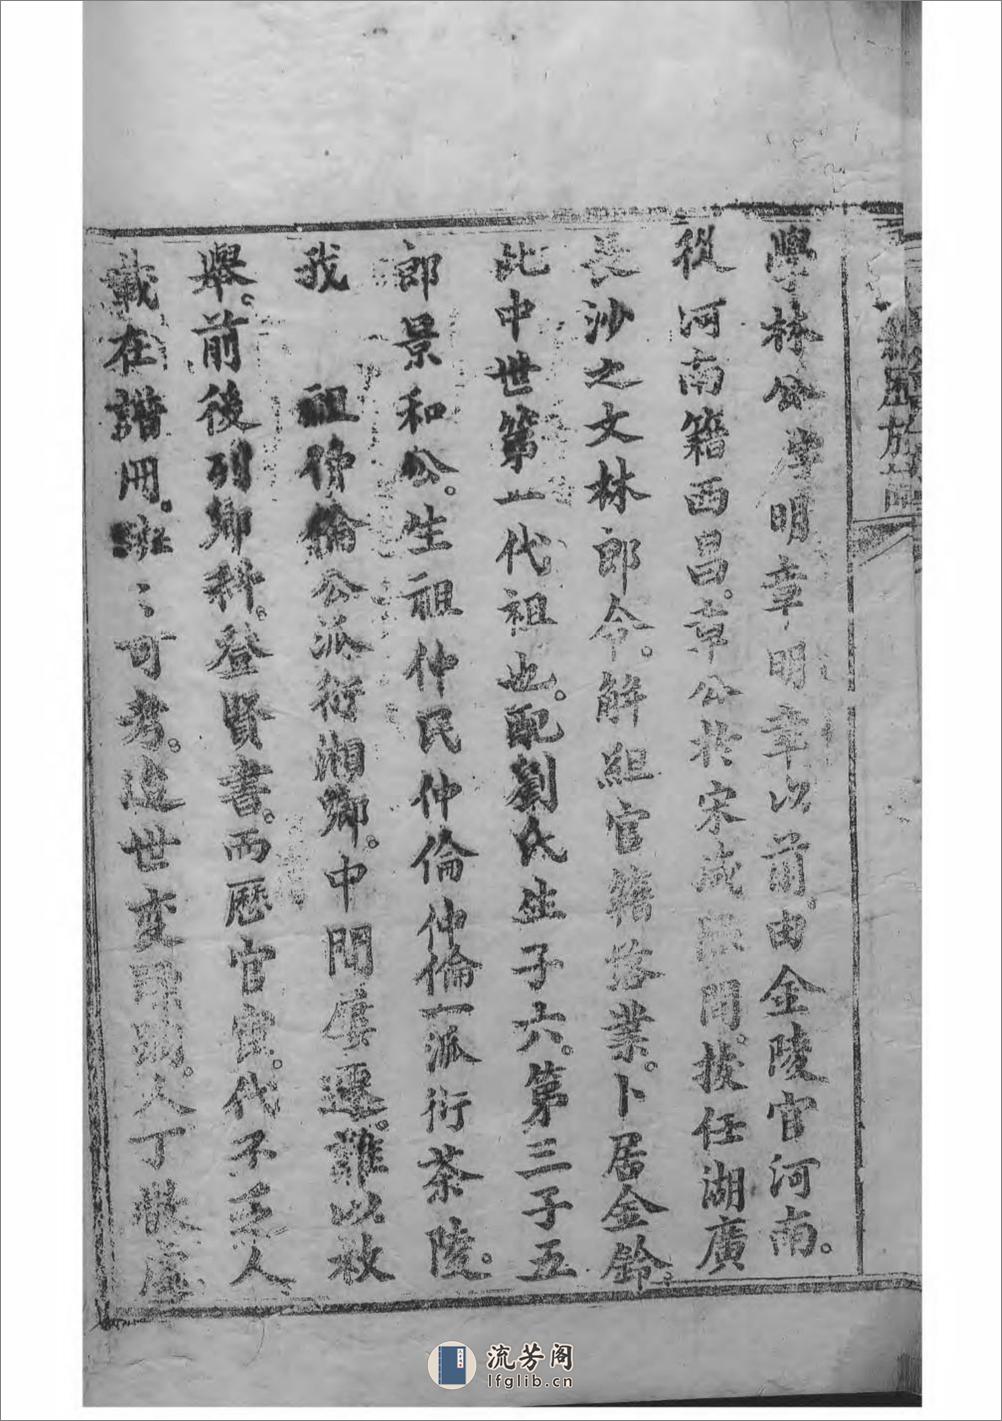 學林公字明章明章以前由金陵官河南。
從河南籍西昌。章公於宋咸淳間。援任湖廣
長沙之文林郎令。解組官籍落業。卜居金鈴。
此中世第一代祖也。配劉氏生子六。第三子五
郎景和公。生祖仲民仲倫仲倫一派衍茶陵。
我 祖仲倫公派衍湘鄉。中間屢遷。難以枚
舉。前後列鄉科。登賢書。而歷官宦。代不乏人
載在譜冊。班ミ可考。迨世変 人丁散處
族譜
流芳阁
lfglib.cn